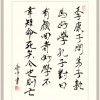 季康子問弟子孰
為好學孔子對曰
有顏回者好學不
幸短命死矣今也則亡